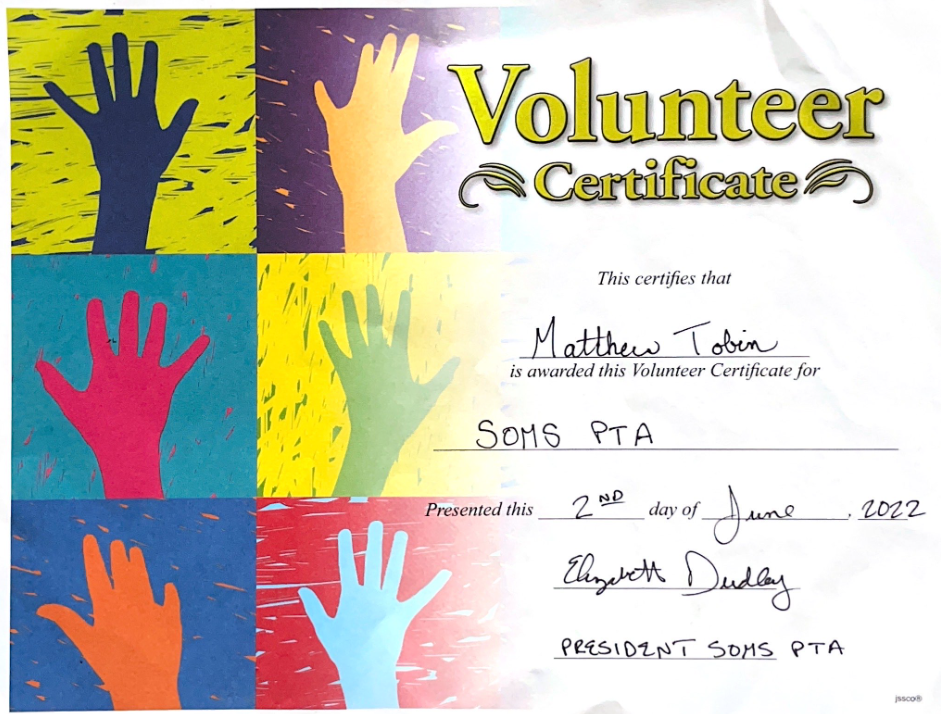 Volunteer
Certificate
This certifies that
Matthew Tobin
is awarded this Volunteer Certificate for
SOMS PTA
Presented this 2ND day of June, 2022
Elizabeth Dudley
PRESIDENT SOMS PTA
jssco®